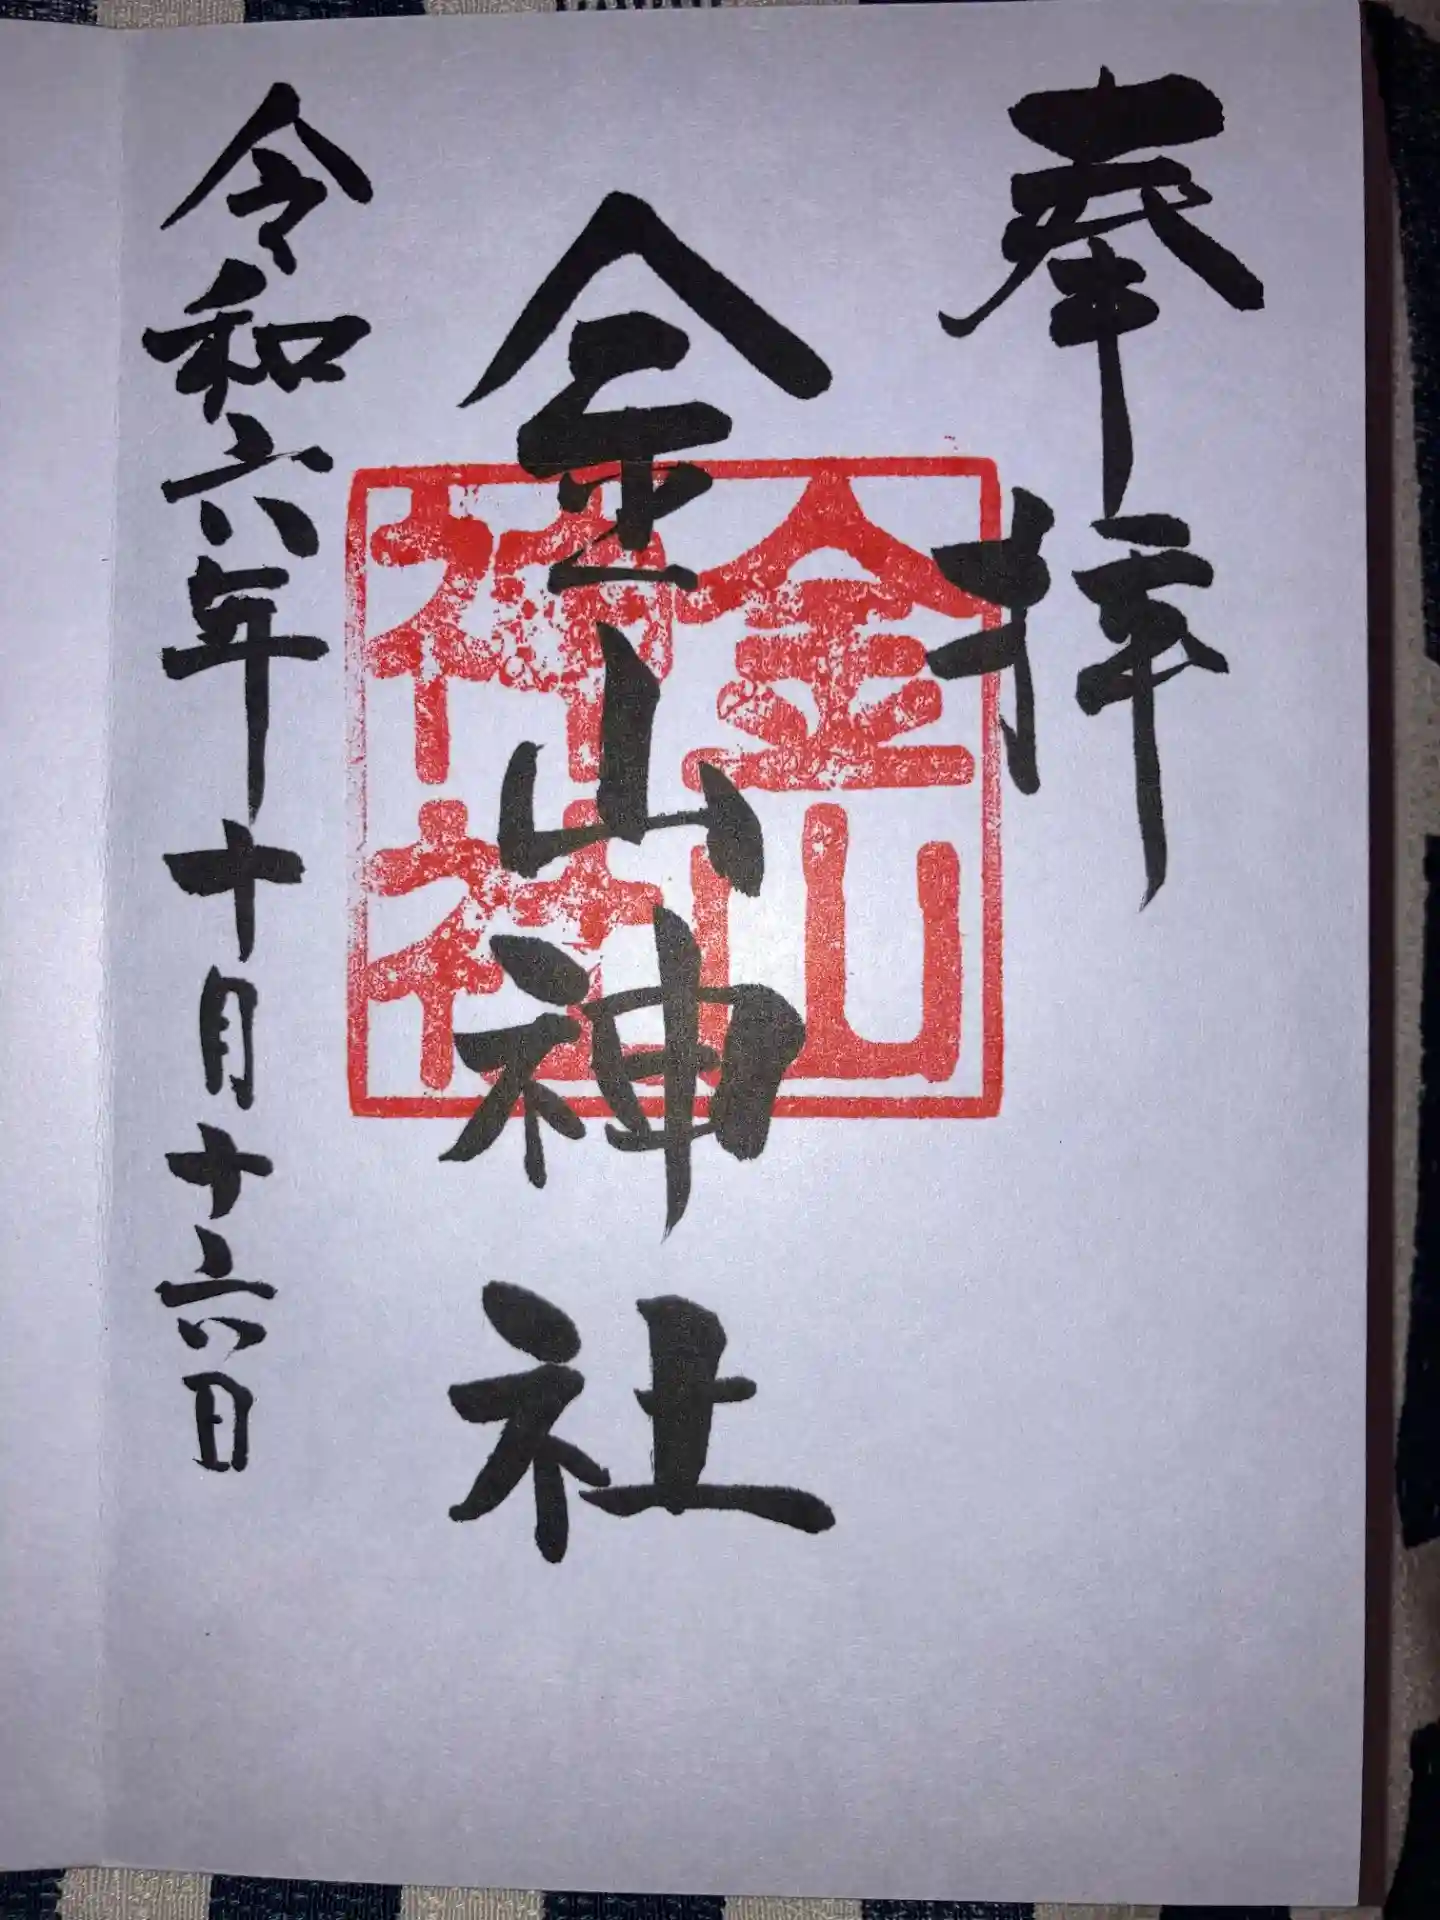 奉拝
金山神社
金山
神社
令和六年十月十六日